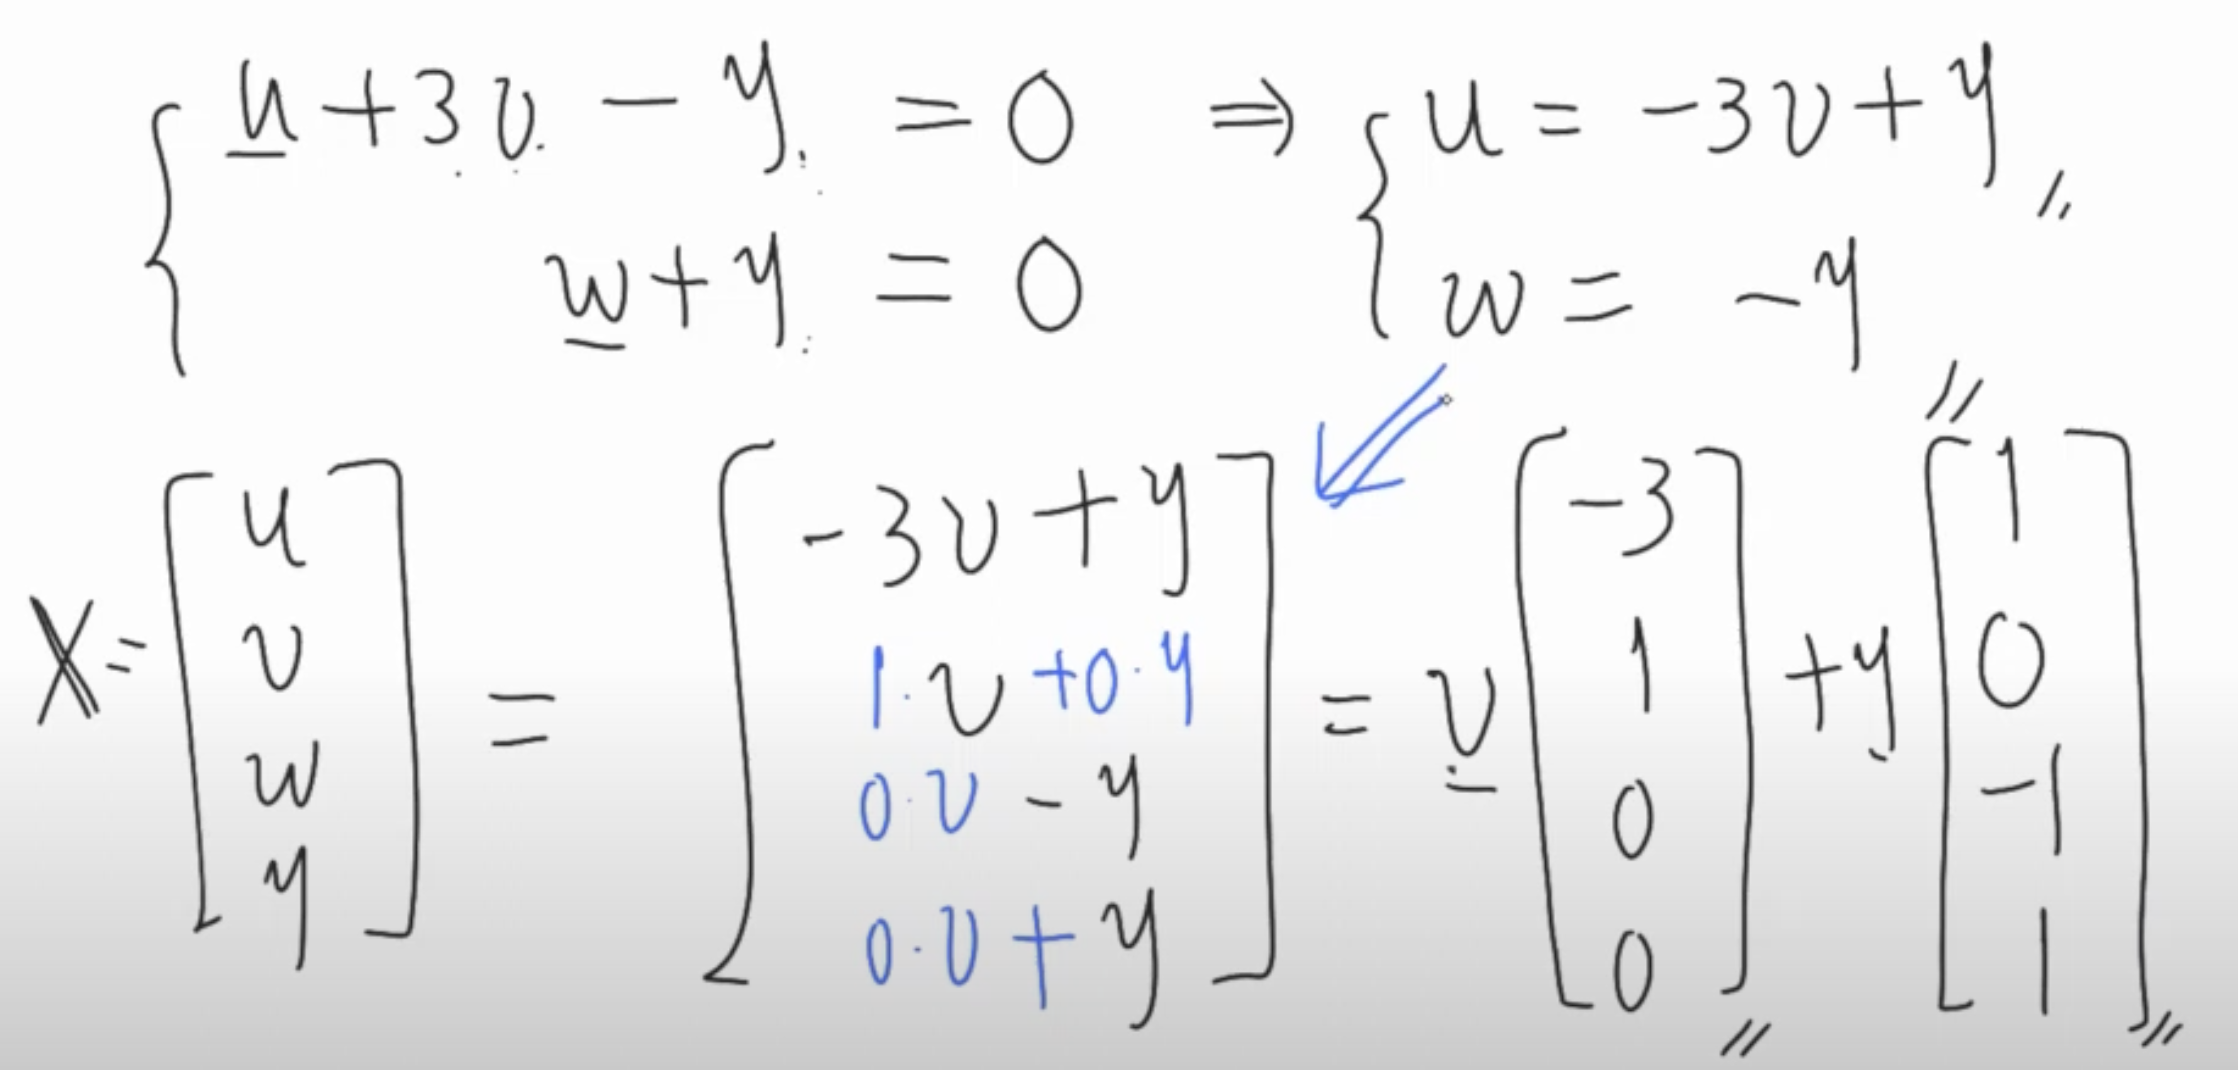 u + 3v - y = 0 ⇒ { u = -3v + y
w + y = 0 { w = -y
X = [u v w y] = [-3v + y, 1·v + 0·y, 0·v - y, 0·v + y] = v [-3 1 0 0] + y [1 0 -1 1]